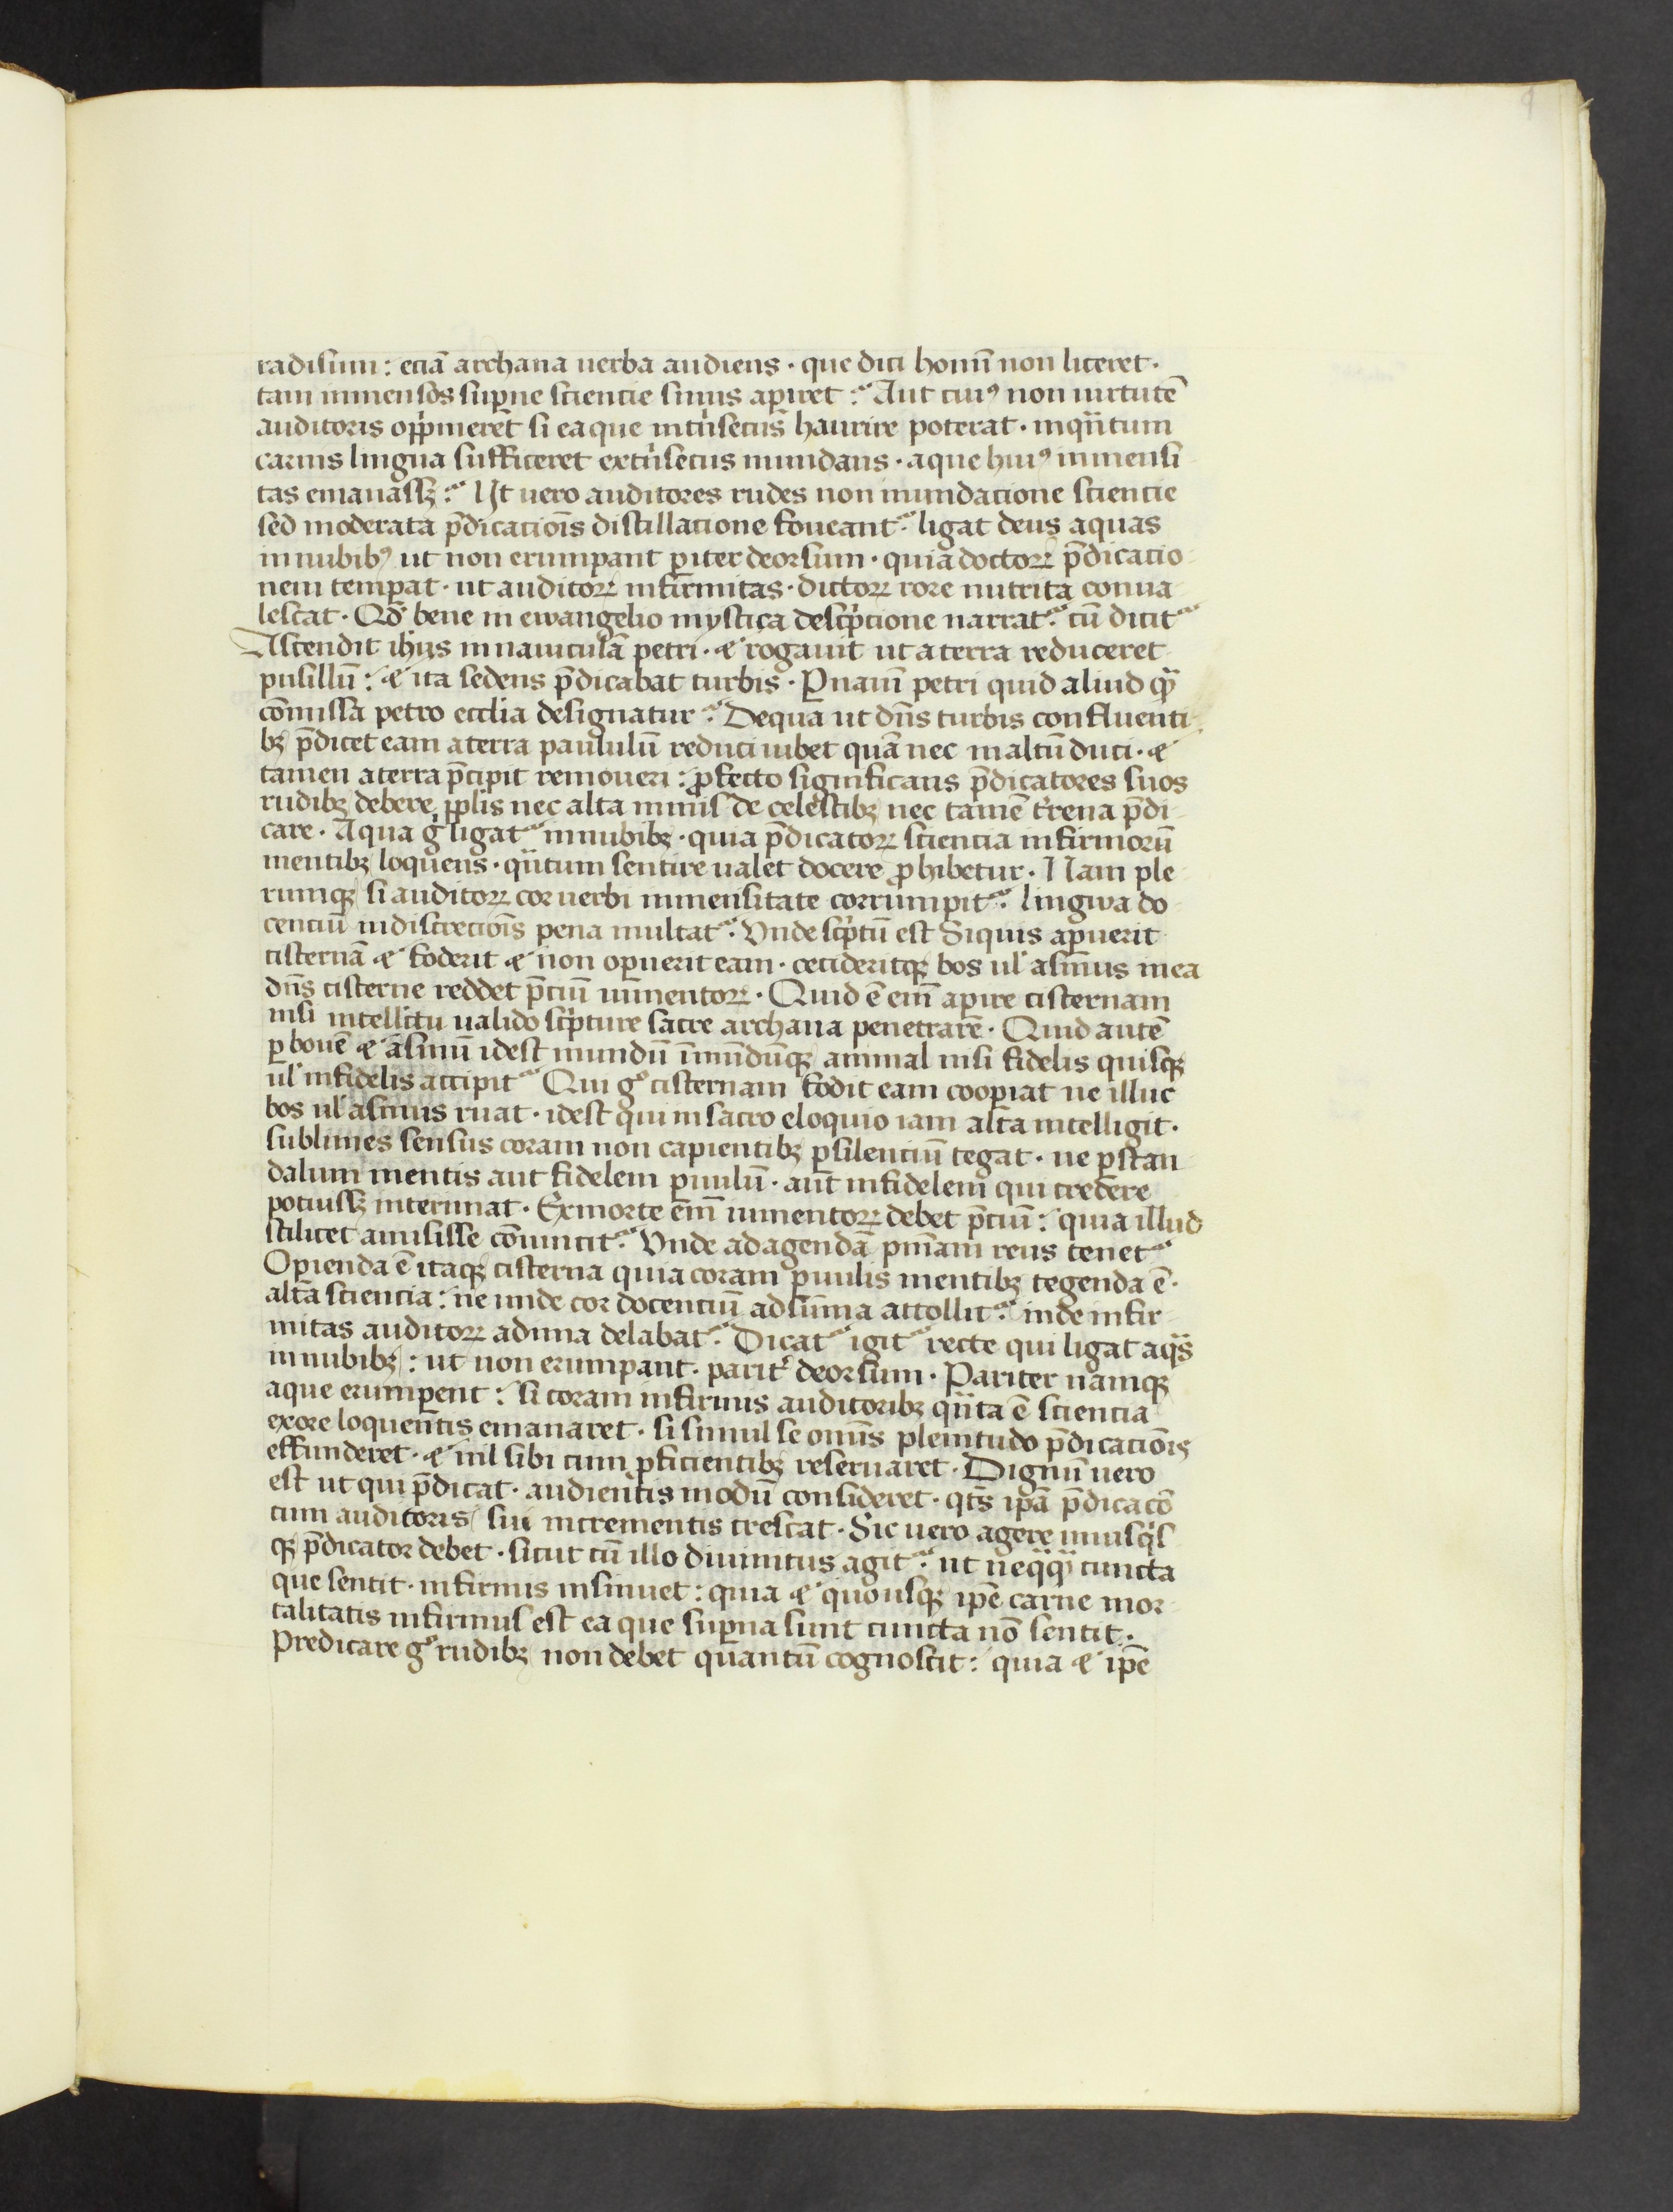 radisum: eciā archana uerba audiens · que dici homī non liceret ·
tam inmensos sup̱ne sciencie sinus ap̱iret : Aut cuiꝰ non uirtutē
auditoris opp̍meret̄ si ea que int̍nsecus haurire poterat · inqͣntum
carnis lingua sufficeret ext̍nsecus inundans · aque huiꝰ inmensi
tas emanassꝫ : Ut uero auditores rudes non inundacione sciencie
sed moderata p̄dicacionis distillacione foueant᷑ ligat deus aquas
in nubibꝰ ut non erumpant ꝑiter deorsum · quia doctoꝝ p̄dicacio
nem temꝑat · ut auditoꝝ infirmitas · dictoꝝ rore nutrita conua
lescat · Qd̄ bene in ewangelio mystica descp̍cione narrat᷑ cū dicit᷑
Ascendit ihūs in nauiculā petri · ⁊ rogauit ut a terra reduceret
pusillū : ⁊ ita sedens p̄dicabat turbis · P nauī petri quid aliud qͣꝫ
cōmissa petro ecclīa designatur : De qua ut dn̄s turbis confluenti
bꝫ p̄dicet eam a terra paululū reduci iubet quā nec in altū duci · ⁊
tamen a terra p̄cipit remoueri : ꝓfecto significans p̄dicatores suos
rudibꝫ debere pp̄lis nec alta nimis de celestibꝫ nec tamē t̍rena p̄di
care · Aqua g̍ ligat᷑ in nubibꝫ · quia p̄dicatoꝝ sciencia infirmorū
mentibꝫ loquens · qͣntum sentire ualet docere ꝓhibetur · Nam ple
rumqꝫ si auditoꝝ cor uerbi inmensitate corrumpit᷑ lingwa do
cenciū indiscrecionis pena multat᷑ Vnde scp̍tū est Siquis apꝑuerit
cisternā ⁊ foderit ⁊ non opꝑuerit eam · cecideritqꝫ bos ul̍ asinus in ea
dn̄s cisterne reddet p̄ciū iumentoꝝ · Quid ē enī apꝑire cisternam
nisi intellcū ualido scp̍ture sacre archana penetrare · Quid autē
ꝑ bouē ⁊ asinū idest mundū īmūdūqꝫ animal nisi fidelis quisqꝫ
ul̍ infidelis accipit᷑ Qui g̊ cisternam fodit eam coopꝑiat ne illuc
bos ul̍ asinus ruat · idest qui in sacro eloquio iam alta intelligit ·
sublimes sensus coram non capientibꝫ ꝑ silenciū tegat · ne ꝑ scan
dalum mentis aut fidelem ꝑuulū · aut infidelem qui credere
potuissꝫ interimat · Ex morte enī iumentoꝝ debet p̄ciū : quia illud
scilicet amisisse cōuincit᷑ Vnde ad agendā pn̄iam reus tenet᷑
Opꝑienda ē itaqꝫ cisterna quia coram ꝑuulis mentibꝫ tegenda ē ·
alta sciencia : ne unde cor docenciū ad sūma attollit᷑ inde infir
mitas auditoꝝ ad ima delabat᷑ Dicat᷑ igit᷑ recte qui ligat aqͣs
in nubibꝫ : ut non erumpant · parit̍ deorsum · Pariter namqꝫ
aque erumpꝑent : si coram infirmis auditoribꝫ qͣnta ē sciencia
ex ore loquentis emanaret · si simul se omīs plenitudo p̄dicacionis
effunderet · ⁊ nil sibi cum ꝓficientibꝫ reseruaret · Dignū uero
est ut qui p̄dicat · audientis modū consideret · qt̄s ipā p̄dicacō
cum auditoris sui incrementis crescat · Sic uero agere unusq̍s
qꝫ p̄dicator debet · sicut cū illo diuinitus agit᷑ ut neqͣqͣꝫ cuncta
que sentit · infirmis insinuet : quia ⁊ quousqꝫ ipē carne mor
talitatis infirmus est ea que supꝑna sunt cuncta nō sentit ·
Predicare g̊ rudibꝫ non debet quantū cognoscit : quia ⁊ ipē